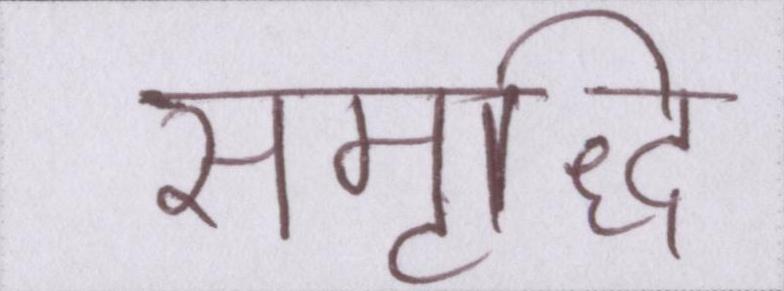 समृद्धि